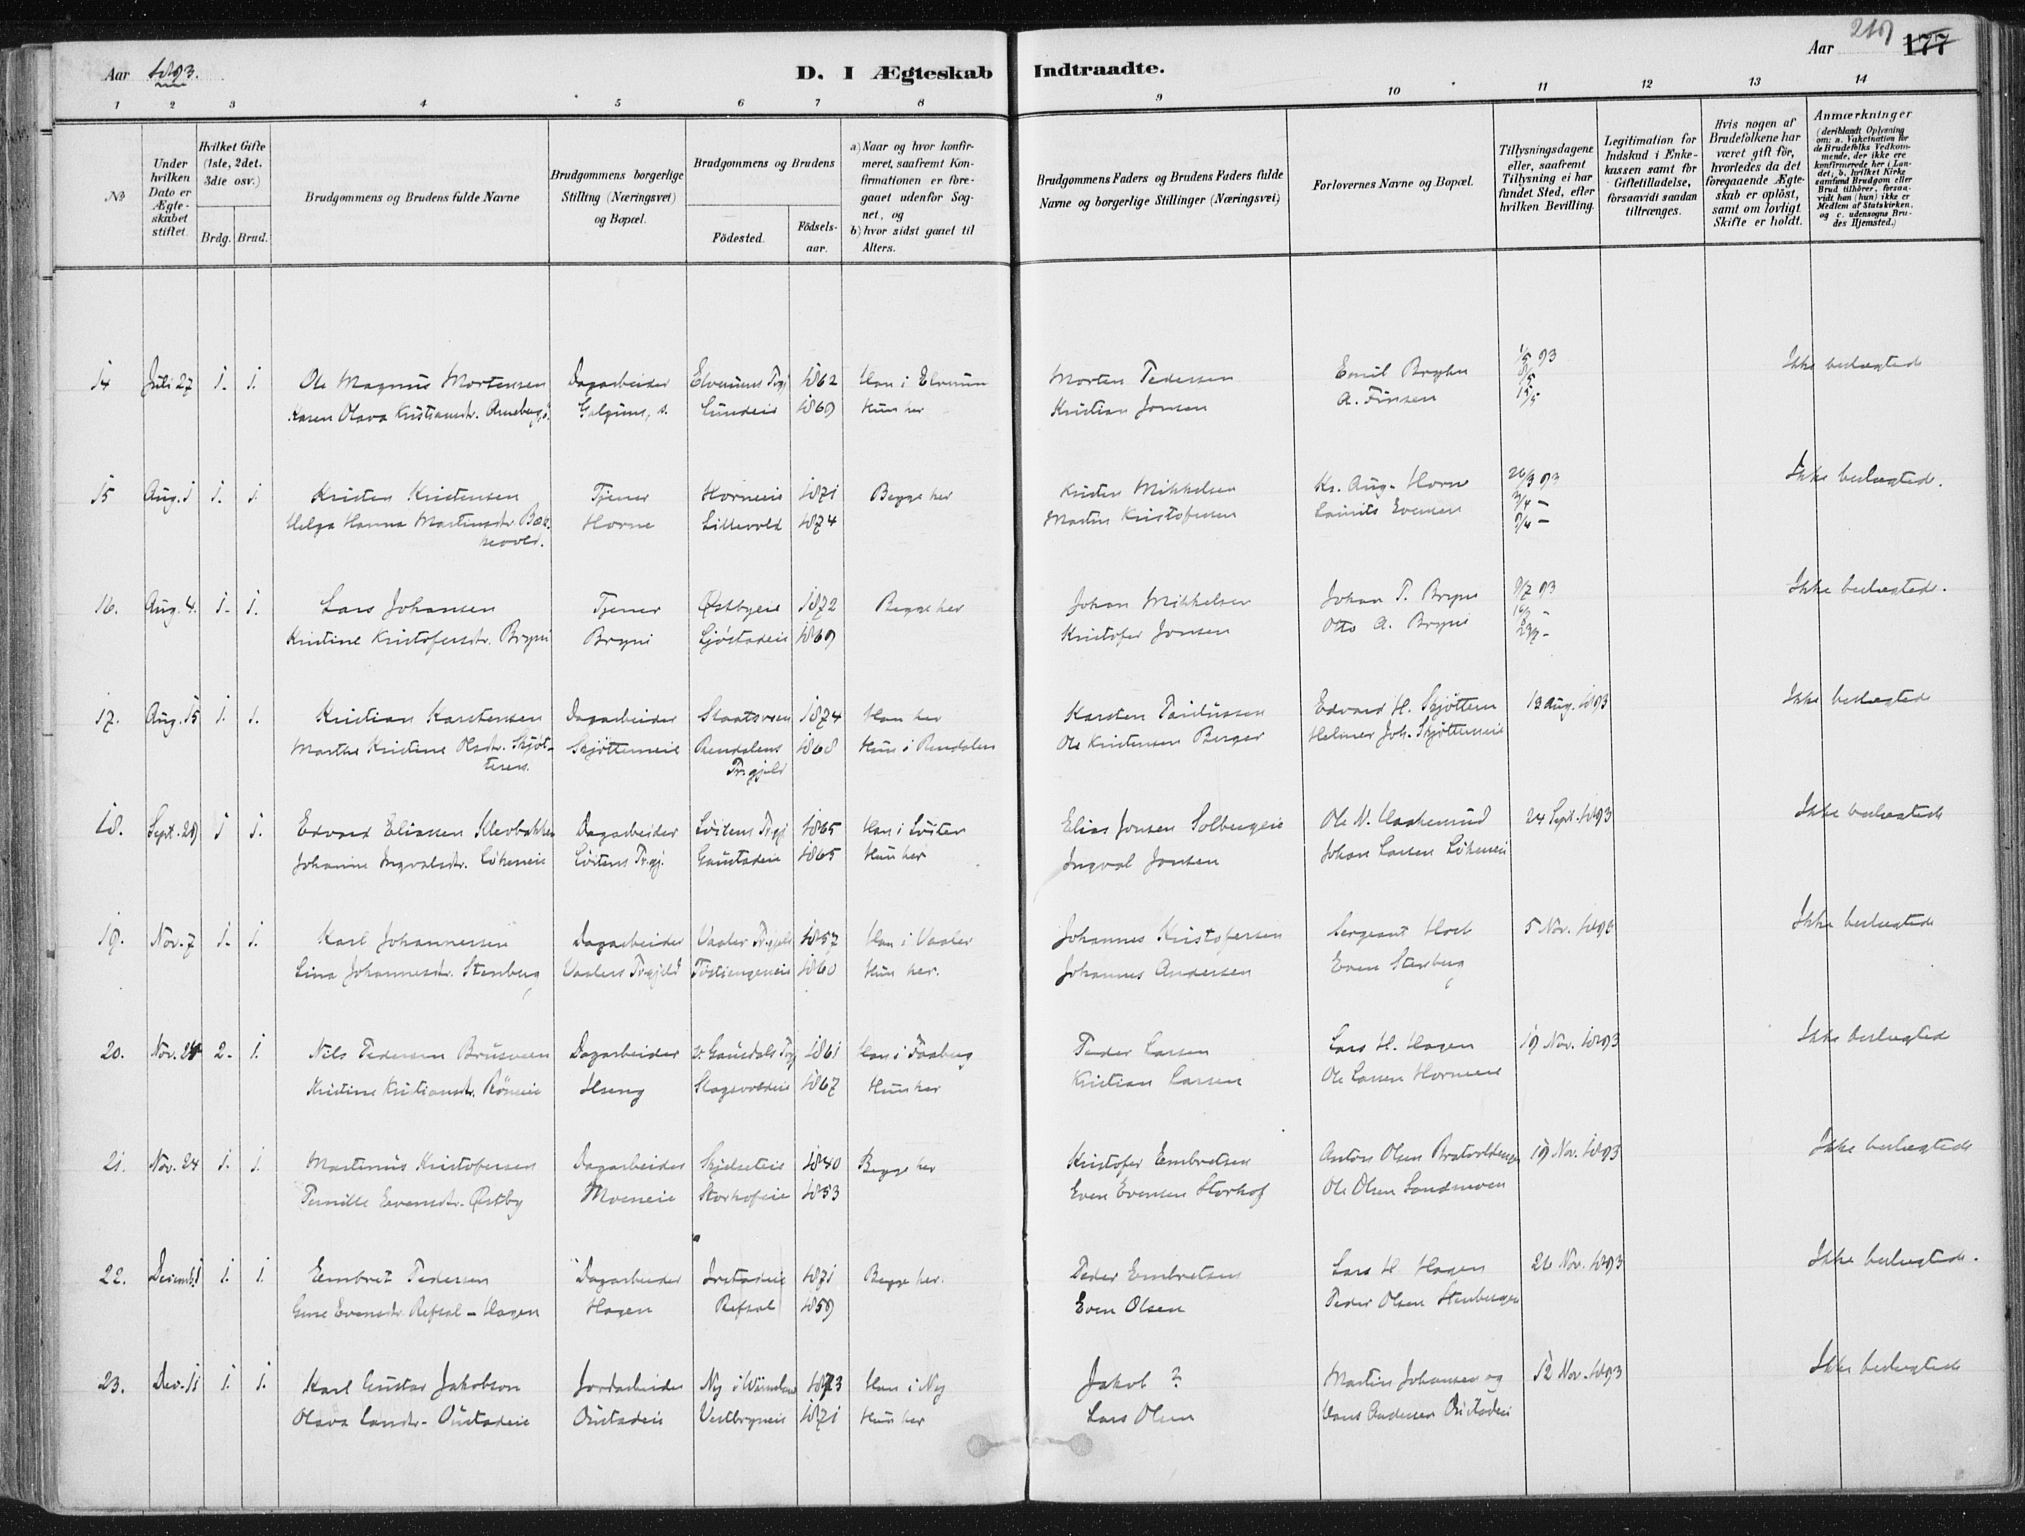 Aar 1893.
D. I Ægteskab Indtraadte.
Aar 177
1 2 3 4 5 6 7 8 9 10 11 12 13 14
No
Under hvilken Dato er Ægteskabet stiftet.
Hvilket Gifte (1ste, 2det, 3die osv.)
Brdg. Brud.
Brudgommens og Brudens fulde Navne
Brudgommens borgerlige Stilling (Næringsvei) og Bopæl.
Brudgommens og Brudens
Födested.
Födselsaar.
a) Naar og hvor konfirmeret, saafremt Konfirmationen er foregaaet udenfor Sognet, og
b) hvor sidst gaaet til Alters.
Brudgommens Faders og Brudens Faders fulde Navne og borgerlige Stillinger (Næringsvei)
Forlovernes Navne og Bopæl.
Tillysningsdagene eller, saafremt Tillysning ei har fundet Sted, efter hvilken Bevilling.
Legitimation for Indskud i Enkekassen samt for Giftetilladelse, forsaavidt saadan tiltrænges.
Hvis nogen af Brudefolkene har været gift för, hvorledes da det foregaaende Ægteskab er oplöst, samt om lovligt Skifte er holdt.
Anmærkninger
(deriblandt Oplysning om: a. Vakcination for de Brudefolks Vedkommende, der ikke ere konfirmerede her i Landet; b. hvilket Kirkesamfund Brudgom eller Brud tilhörer, forsaavidt han (hun) ikke er Medlem af Statskirken, og c. udensogns Brudes Hjemsted.)
14 Juli 27 1. 1. Ole Magnus Mortensen Dagarbeider Elverums Prgj 1862 Han i Elverum Morten Pedersen Emil Bryhn 1/5 93 Ikke beslægtede
Karen Olava Kristiansdr. Lundeie 1869 Hun her Kristian Jonsen A. Finsen
15 Aug. 1 1. 1. Kristen Kristensen Tjener Horneie 1871 Begge her Kristen Mikkelsen Kr. Aug. Horne 26/3 93 Ikke beslægtede.
Helga Hanna Martinsdr. Horne Lillevold 1874 Martin Kristofersen Laurits Evensen 9/4 –
16. Aug. 4. 1. 1. Lars Johansen Tjener Østbyeie 1872 Begge her Johan Mikkelsen Johan P. Bryni 9/7 93 Ikke beslægtede.
Kristine Kristofersdr. Bryni Bryni Sjöstadeie 1869 Kristofer Jonsen Otto A. Bryni
17. Aug. 15 1. 1. Kristian Karstensen Dagarbeider 1874 Han her Karsten Edvard H. Skjötten 13 Aug. 1893 Ikke beslægtede
Marthe Kristine Olsdr. Skjöt- Skjötteneie Rendalens 1868 Hun i Rendalen Ole Kristensen Berger Helmer Joh. Skjötteneie
Prgjeld
18. Sept. 29 1 1. Edvard Eliassen Klevbakken Dagarbeider Löitens Prgj 1865 Han i Löiten Elias Jonsen Solbergeie Ole N. 24 Sept. 1893 Ikke beslægtede
Johanne Ingvalsdr. Lökeneie Löitens Prgj. Gaustadeie 1865 Hun her Ingval Jonsen Johan Larsen Lökeneie
19. Nov. 7 1. 1. Karl Johannessen Dagarbeider Vaaler Prgjeld 1857 Han i Vaaler Johannes Kristofersen Sergeant 5 Nov. 1893 Ikke beslægtede
Lina Johannesdr. Stenberg Vaalers Prgjeld 1860 Hun her. Johannes Andersen Even Stenberg
20. Nov. 24 2. 1. Nils Pedersen Brusveen Dagarbeider Gausdals Prgj 1861 Han i Faaberg Peder Larsen Lars H. Hagen 19 Nov. 1893 Ikke beslægtede
Kristine Kristiansdr. Röneie Hseng Skagsvoldeie 1867 Hun her Kristian Larsen Ole Larsen Horneeie
21. Nov. 24 1. 1. Martinus Kristofersen Dagarbeider Skjelseteie 1840 Begge her Kristofer Embretsen Anton Olsen Bratvoldengen 19 Nov. 1893 Ikke beslægtede
Pernille Evensdr. Østby Moeneie Storhofeie 1853 Even Evensen Storhof Ole Olsen Sandmoen
22. Desemb. 1 1. 1. Embret Pedersen Dagarbeider 1871 Begge her. Peder Embretsen Lars H Hagen 26 Nov. 1893 Ikke beslægtede.
Evensdr. Refsal – Hagen Hagen Refsal 1859 Even Olsen Peder Olsen Stenbergeie
23. Dec. 11 1. 1. Karl Gustav Jakobson Jordarbeider Ny i Wärmland 1873 Han i Ny Jakob ? Martin Johansen og 12 Nov. 1893 Ikke beslægtede
Olava Larsdr. Oustadeie Oustadeie Vestbryneie 1871 Hun her Lars Olsen Hans Andersen Oustadeie